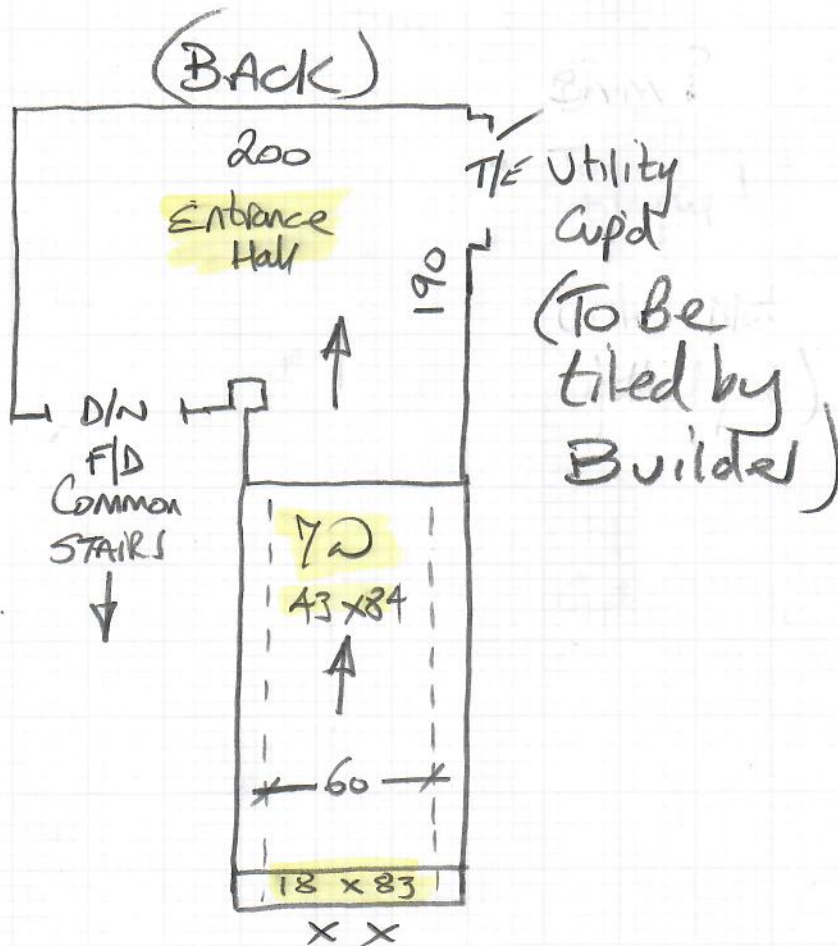 (BACK)
200
Entrance
Hall
190
T/E Utility
Cup'd
(To Be
tiled by
Builder)
D/N
F/D
Common
STAIRS
43 x 84
60
18 x 83
x x